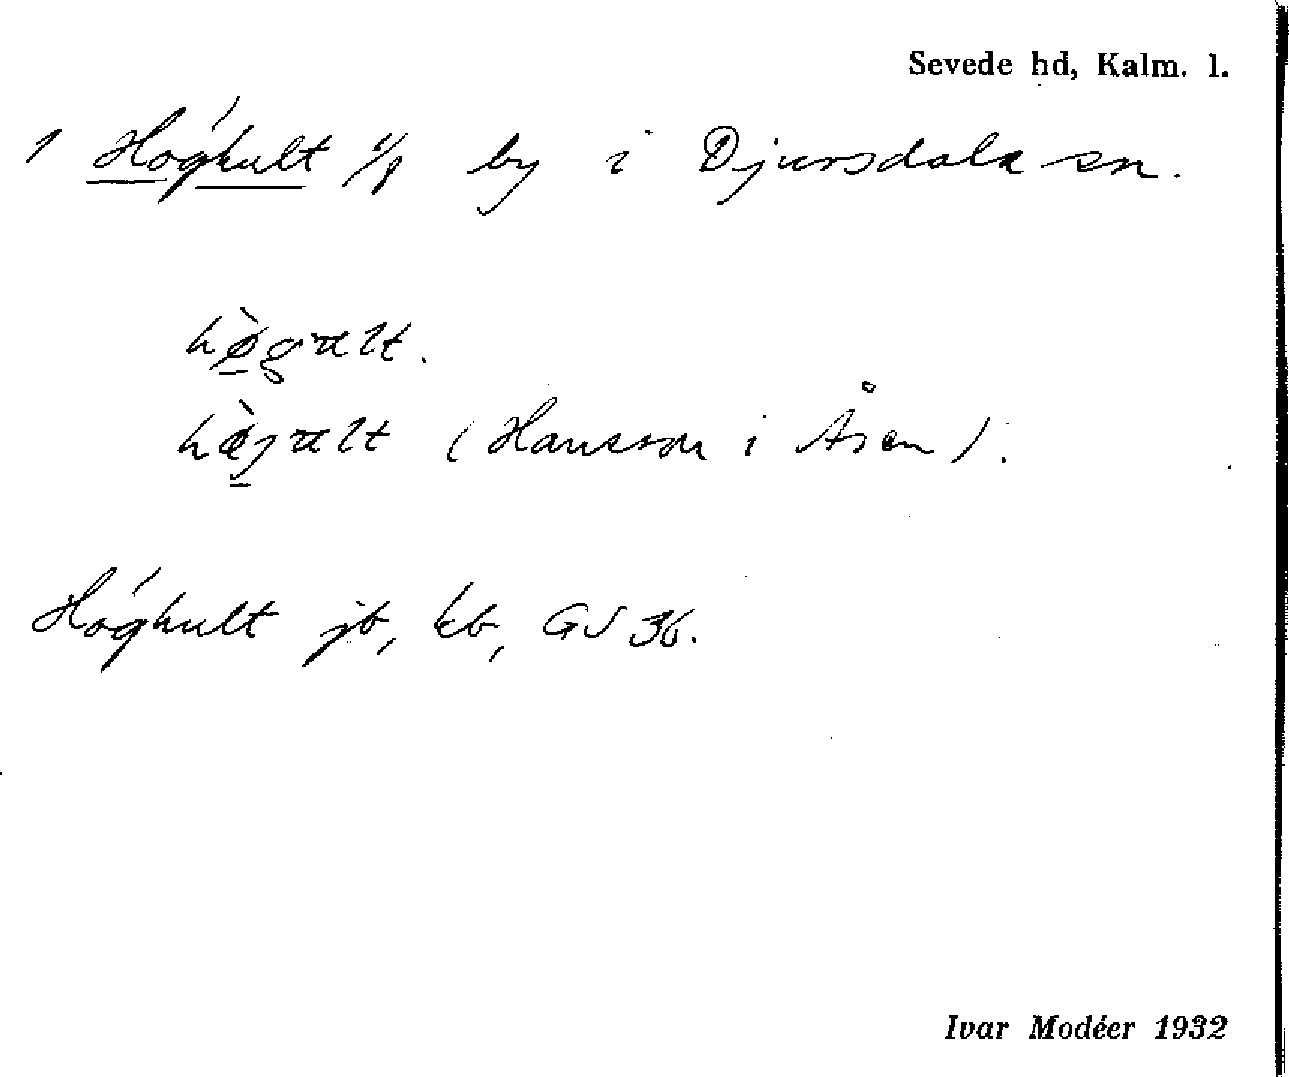 Sevede hd, Kalm. l.
1 Höghult 1/1 by i Djursdala sn.
hø̀gult.
hø̀jult (Hansson i Åsen).
Höghult jb, kb, GS 36.
Ivar Modéer 1932